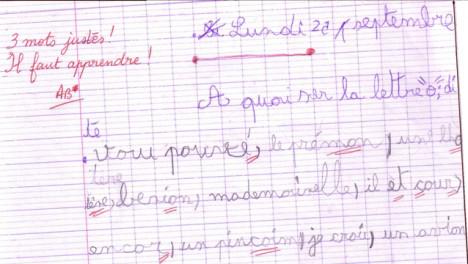 3 mots justes !
Il faut apprendre !
AB
Lundi 22 septembre
A quoi ser la lettre
té
vous pouvé, le prémon, une
tère, benion, mademoirelle, il et cour,
encor, un pincoin, je croi, un avion